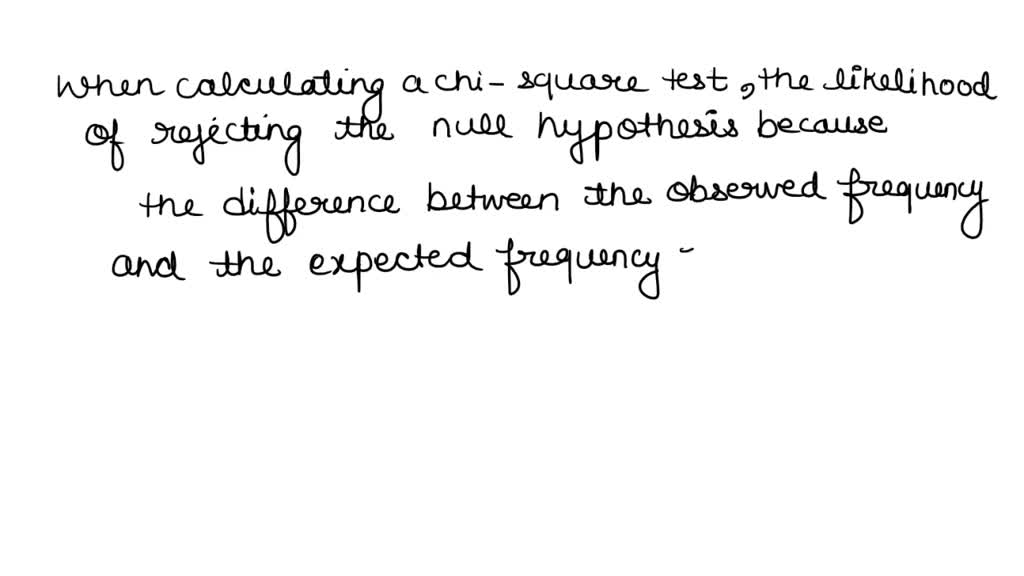 When calculating a chi-square test, the likelihood
of rejecting the null hypothesis because
the difference between the observed frequency
and the expected frequency -